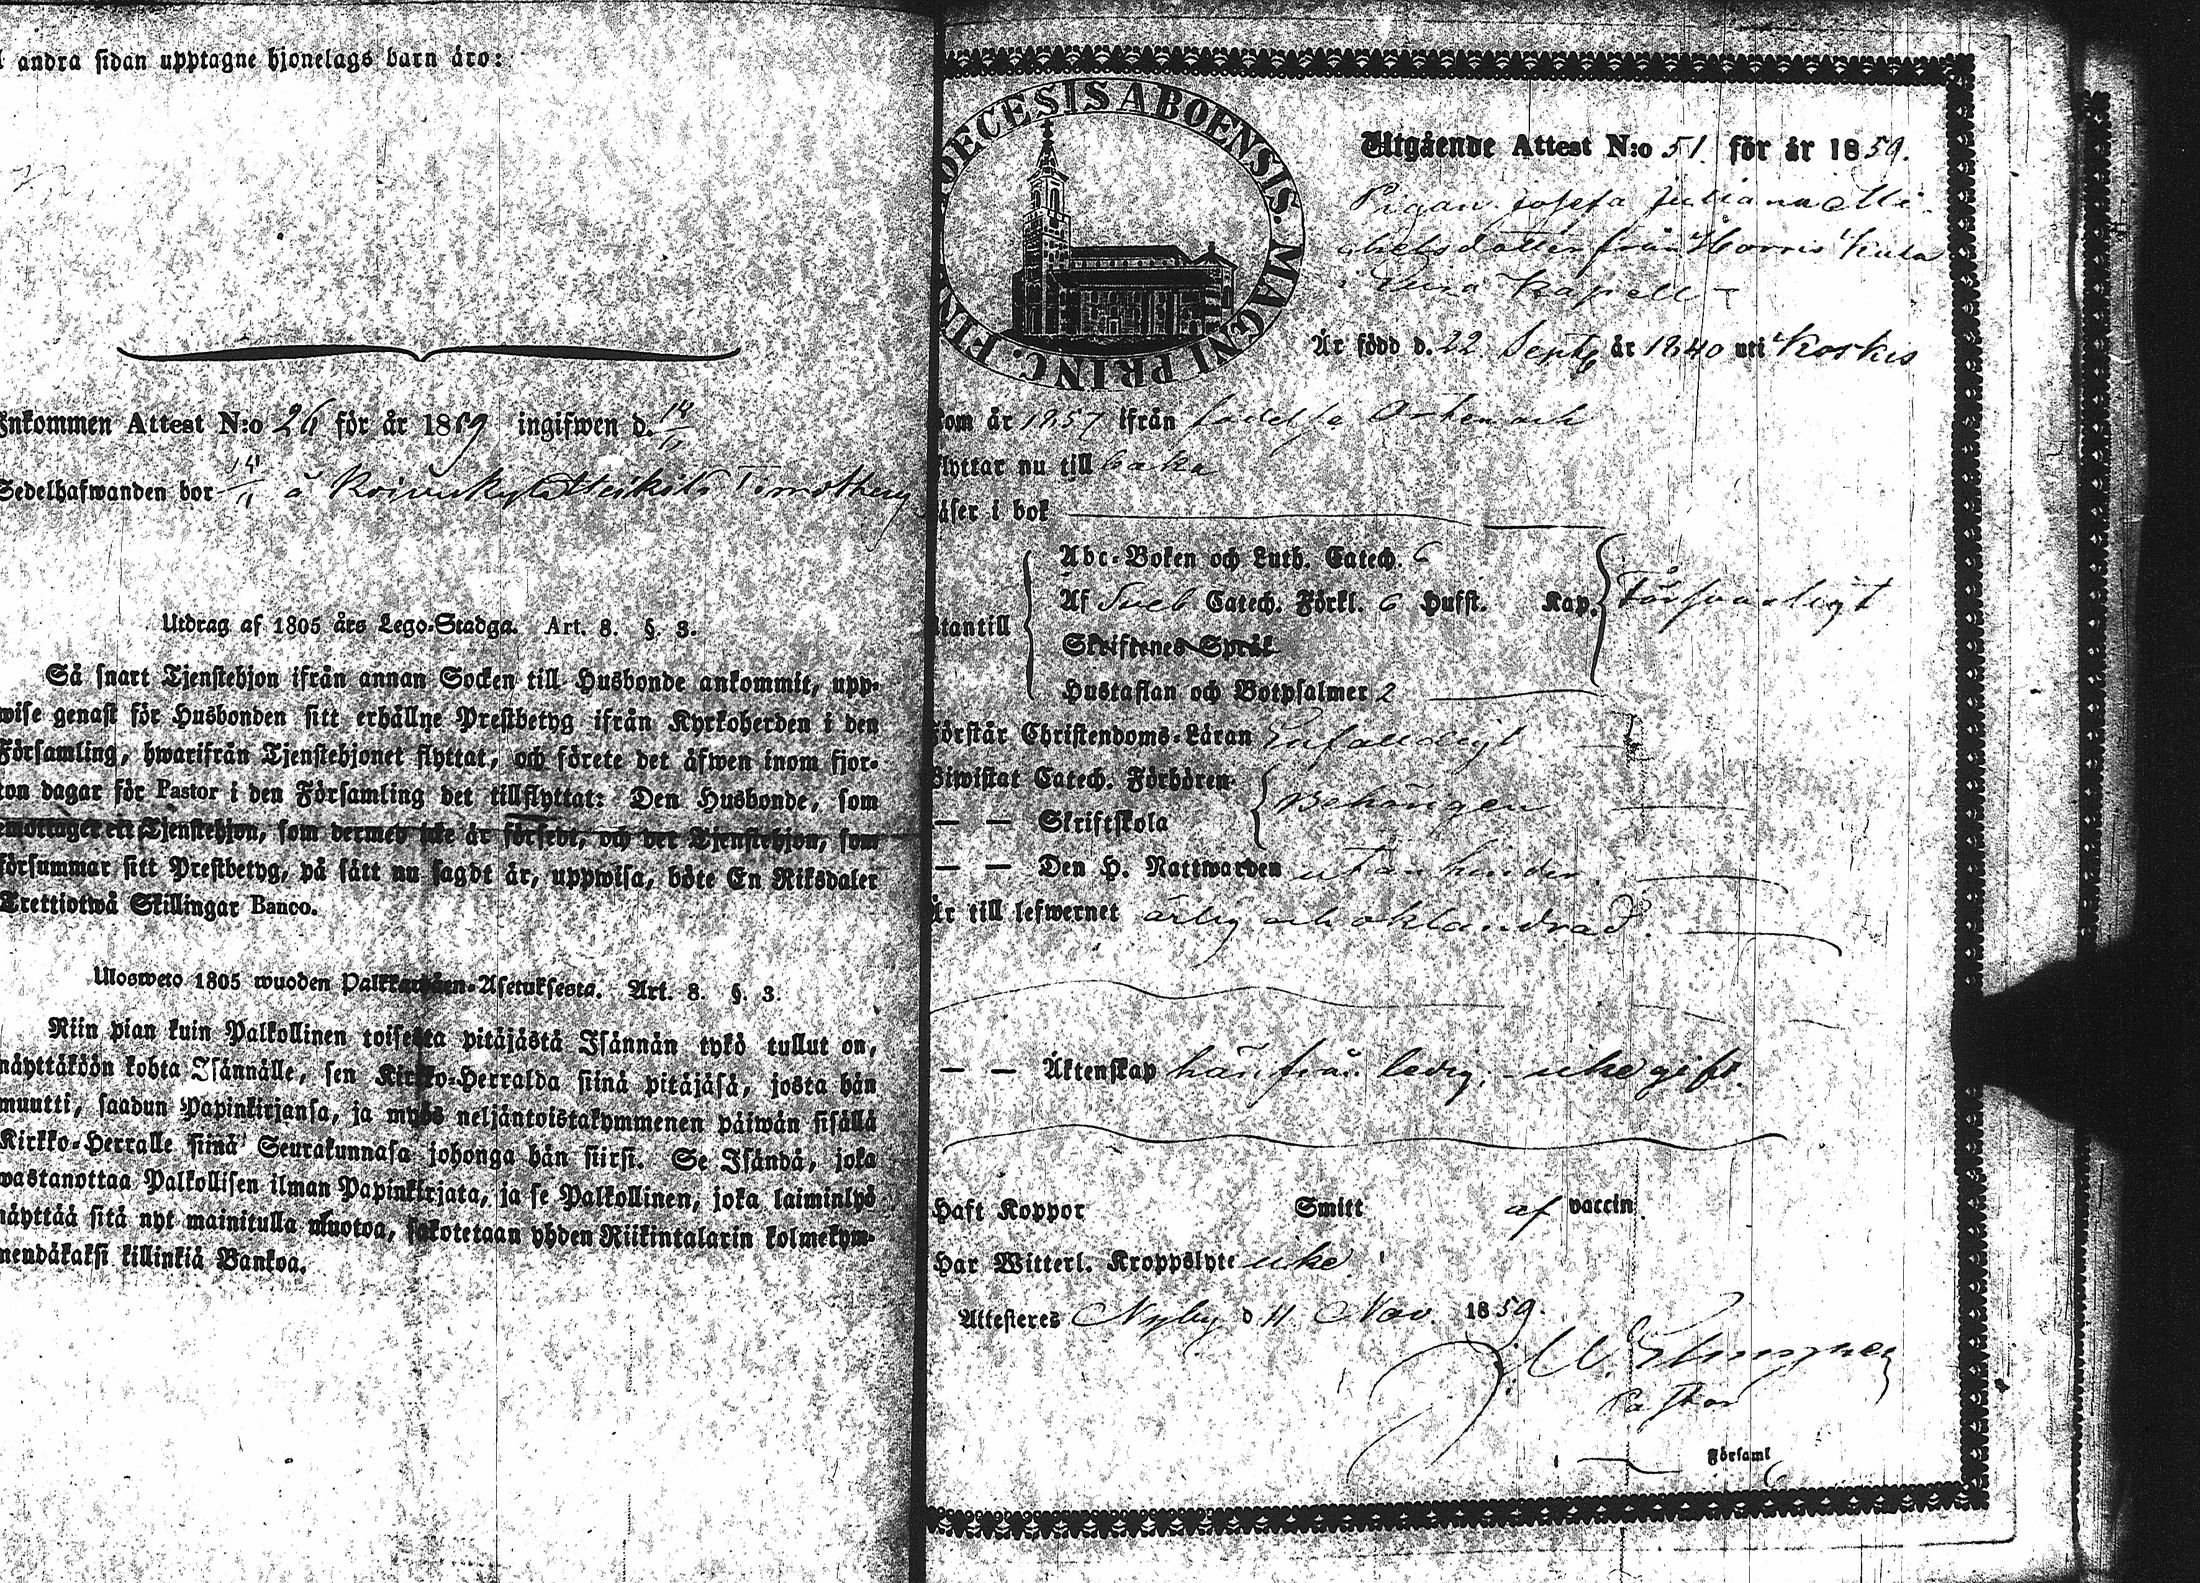 andra sidan upptagne hjonelags barn äro:
Inkommen Attest N:o 26 för år 1859 ingifwen d. 14/11
Sedelhafwanden bor 14/11 å
Utdrag af 1805 års Lego-Stadga. Art. 8. §. 3.
Så snart Tjenstehjon ifrån annan Socken till Husbonde ankommit, upp-
wise genast för Husbonden sitt erhållne Prestbetyg ifrån Kyrkoherden i den
Församling, hwarifrån Tjenstehjonet flyttat, och förete det äfwen inom fjor-
ton dagar för Pastor i den Församling det tillflyttat: Den Husbonde, som
emottager ett Tjenstehjon, som dermed icke är försedt, och der Tjenstehjon, som
försummar sitt Prestbetyg, på sätt nu sagdt är, uppwisa, böte En Riksdaler
Trettiotwå Skillingar Banco.
Ulosweto 1805 wuoden Palkkawäen-Asetuksesta. Art. 8. §. 3.
Niin pian kuin Palkollinen toisesta pitäjästä Isännän tykö tullut on,
näyttäköön kohta Isännälle, sen Kirkko-Herralda siinä pitäjäsä, josta hän
muutti, saadun Papinkirjansa, ja myös neljäntoistakymmenen päiwän sisällä
Kirkko-Herralle siinä Seurakunnasa johonga hän siirsi. Se Isändä, joka
wastanottaa Palkollisen ilman Papinkirjata, ja se Palkollinen, joka laiminlyö
näyttää sitä nyt mainitulla muotoa, sakotetaan yhden Riikintalarin kolmekym-
mendäkaksi killinkiä Bankoa.
DIOECESIS ABOENSIS. MAGNI PRINC. FIN
Utgående Attest N:o 51. för år 1859.
Pigan Josefa Juliana Mi-
chelsdotter från
Kapell
Är född d. 22 Septb år 1840 uti Koskis
kom år 1857 ifrån
flyttar nu till baka
läser i bok
Abc-Boken och Luth. Catech. 6
Af Sveb Catech. Förkl. 6 Hufst. Kap. Försvarligt
utantill
Skriftenes Språk
Hustaflan och Botpsalmer 2
Förstår Christendoms-Läran Enfaldigt
Biwistat Catech. Förhören
Behörigen
— — Skriftskola
— — Den H. Nattwarden utan hinder
Är till lefwernet ärlig och oklandrad.
— — Äktenskap härifrån ledig, icke gift.
Haft Koppor Smitt af vaccin.
Har Witterl. Kroppslyte icke
Attesteres Nyby d 11 Nov. 1859.
Pastor
i Församl